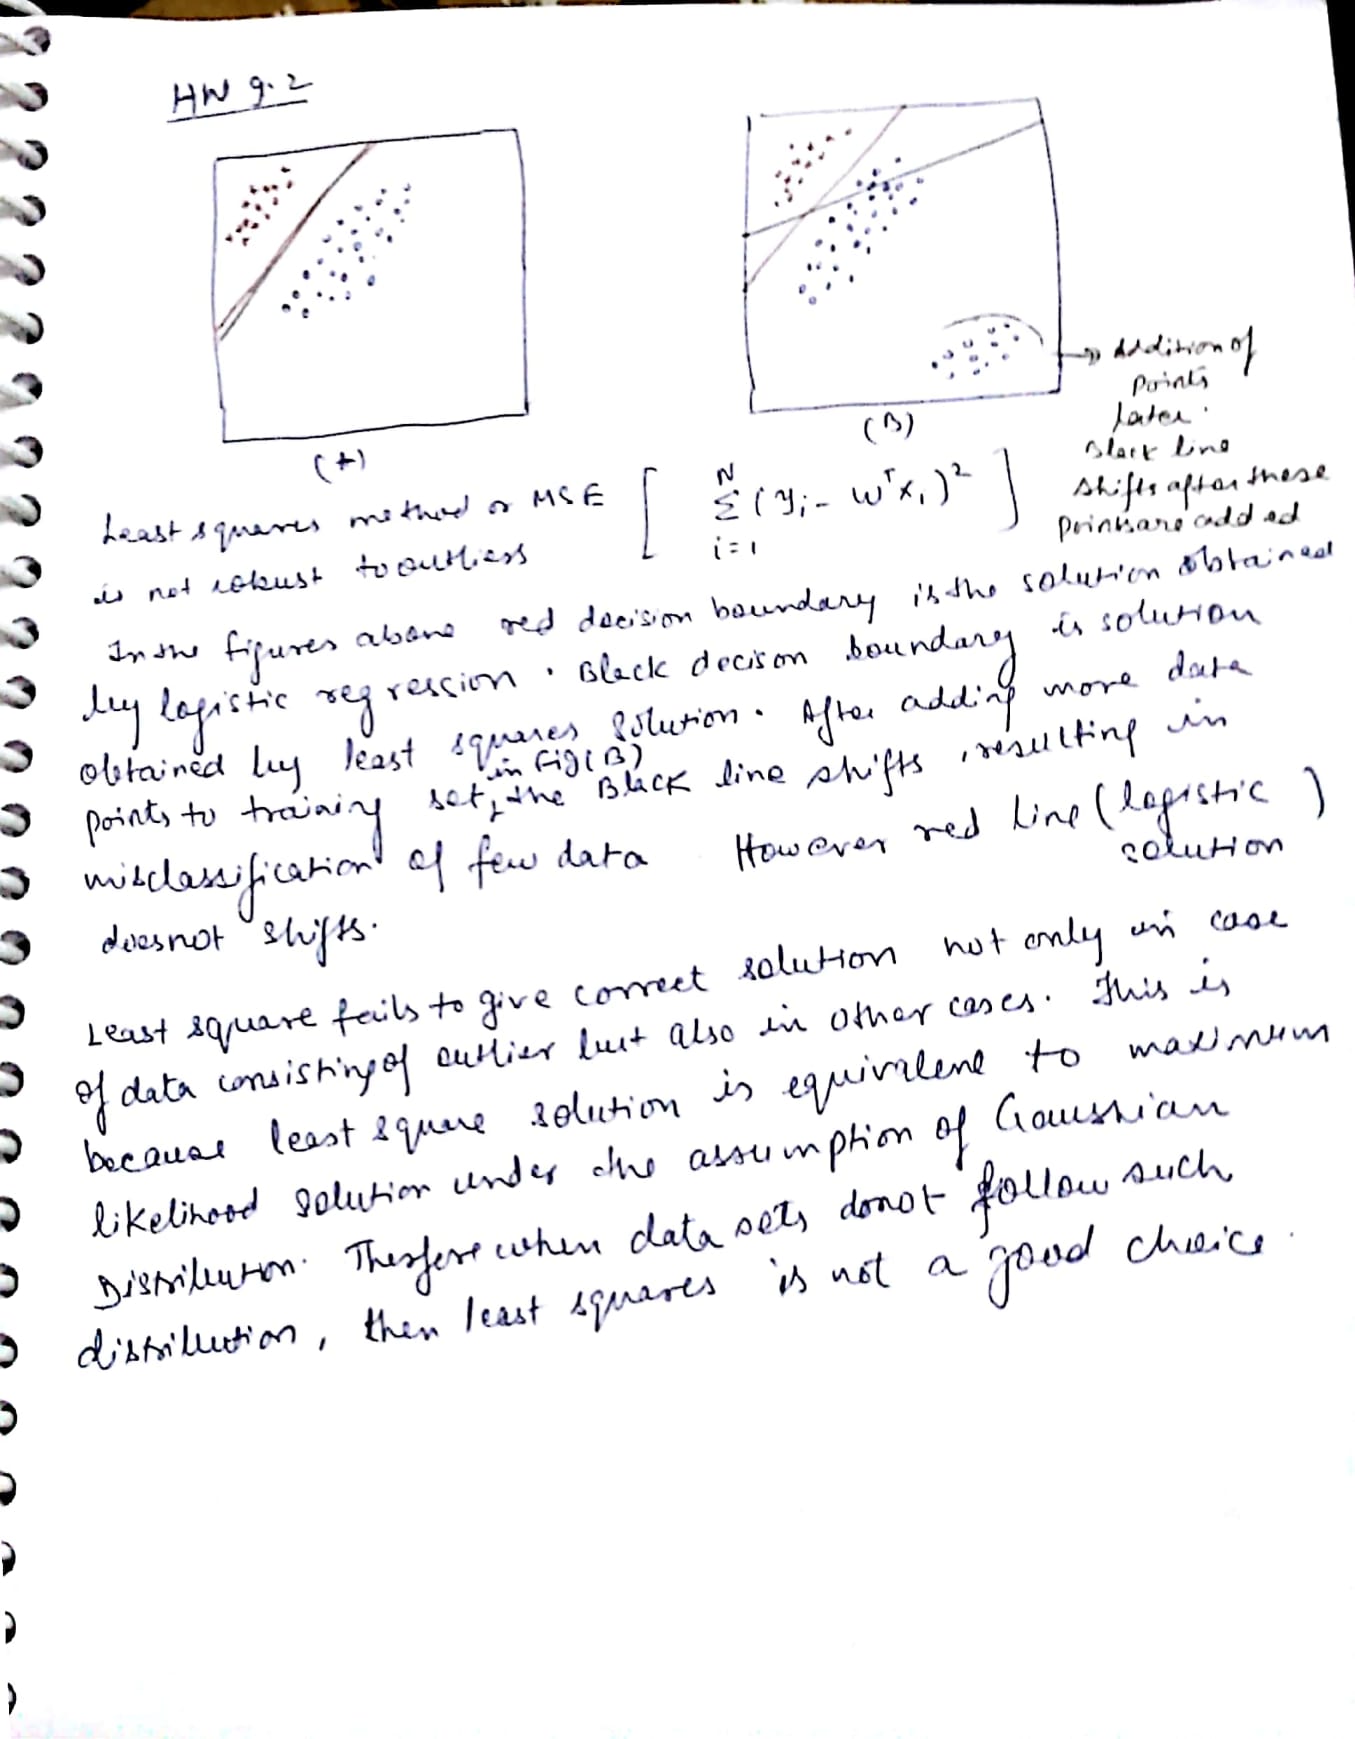 HW 9.2
(A)
(B)
Addition of
points
later.
Black line
shifts after these
points are added
Least squares method or MSE [ N Σ i=1 (yi - wTxi)2 ]
is not robust to outliers
In the figures above red decision boundary is the solution obtained
by logistic regression. Black decison boundary is solution
obtained by least squares solution. After adding more data
points to training set, in Fig(B) the Black line shifts, resulting in
misclassification of few data. However red line (logistic solution)
doesnot shifts.
Least square fails to give correct solution not only in case
of data consisting of outlier but also in other cases. This is
because least square solution is equivalent to maximum
likelihood solution under the assumption of Gaussian
Distribution. Therefore when data sets donot follow such
distribution, then least squares is not a good choice.